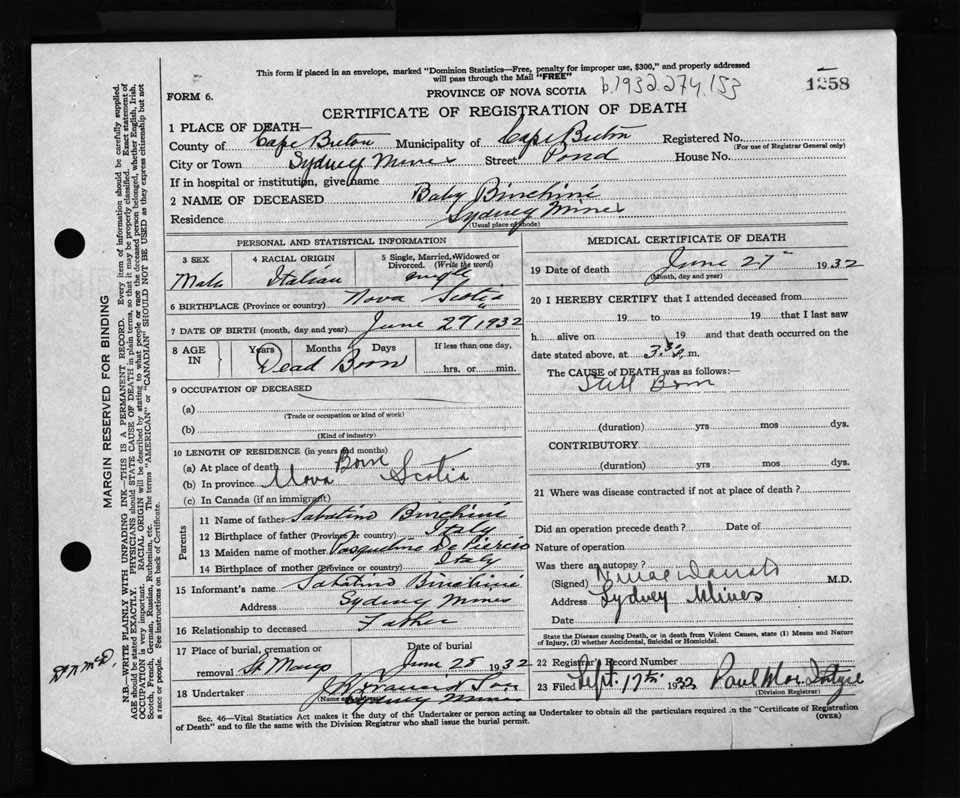 This form if placed in an envelope, marked "Dominion Statistics—Free, penalty for improper use, $300," and properly addressed
will pass through the Mail "FREE"
1258
FORM 6.
PROVINCE OF NOVA SCOTIA b.1932.274.153
CERTIFICATE OF REGISTRATION OF DEATH
1 PLACE OF DEATH—
County of Cape Breton Municipality of Cape Breton Registered No.
(For use of Registrar General only)
City or Town Sydney Mines Street Pond House No.
If in hospital or institution, give name
2 NAME OF DECEASED Baby Binchini
Residence Sydney Mines
(Usual place of abode)
PERSONAL AND STATISTICAL INFORMATION
3 SEX 4 RACIAL ORIGIN 5 Single, Married, Widowed or
Divorced. (Write the word)
Male Italian single
6 BIRTHPLACE (Province or country) Nova Scotia
7 DATE OF BIRTH (month, day and year) June 27 1932
8 AGE IN Years Months Days If less than one day,
hrs. or min.
Dead Born
9 OCCUPATION OF DECEASED
(a)
(Trade or occupation or kind of work)
(b)
(Kind of industry)
10 LENGTH OF RESIDENCE (in years and months)
(a) At place of death Born
(b) In province Nova Scotia
(c) In Canada (if an immigrant)
Parents
11 Name of father Sabatino Binchini
12 Birthplace of father (Province or country) Italy
13 Maiden name of mother
14 Birthplace of mother (Province or country) Italy
15 Informant's name Sabatino Binchini
Address Sydney Mines
16 Relationship to deceased Father
17 Place of burial, cremation or Date of burial
removal St Marys June 28 1932
18 Undertaker
(Name and address)
Sydney Mines
MEDICAL CERTIFICATE OF DEATH
19 Date of death June 27 1932
(Month, day and year)
20 I HEREBY CERTIFY that I attended deceased from
19 to 19 that I last saw
h alive on 19 and that death occurred on the
date stated above, at m.
The CAUSE of DEATH was as follows:—
Still Born
(duration) yrs mos dys.
CONTRIBUTORY
(duration) yrs mos dys.
21 Where was disease contracted if not at place of death?
Did an operation precede death? Date of
Nature of operation
Was there an autopsy?
(Signed) M.D.
Address Sydney Mines
Date
State the Disease causing Death, or in death from Violent Causes, state (1) Means and Nature
of Injury, (2) whether Accidental, Suicidal or Homicidal.
22 Registrar's Record Number
23 Filed Sept. 17th 1932 Paul
(Division Registrar)
Sec. 46—Vital Statistics Act makes it the duty of the Undertaker or person acting as Undertaker to obtain all the particulars required in the "Certificate of Registration
of Death" and to file the same with the Division Registrar who shall issue the burial permit.
(OVER)
MARGIN RESERVED FOR BINDING
N.B.—WRITE PLAINLY WITH UNFADING INK—THIS IS A PERMANENT RECORD. Every item of information should be carefully supplied.
AGE should be stated EXACTLY. PHYSICIANS should STATE CAUSE OF DEATH in plain terms, so that it may be properly classified. Exact statement of
OCCUPATION is very important. RACIAL ORIGIN will be described by stating to what people or race the deceased person belonged, whether English, Irish,
Scotch, French, German, Russian, Ruthenian, etc. The terms "AMERICAN" or "CANADIAN" SHOULD NOT BE USED as they express citizenship but not
a race or people. See instructions on back of Certificate.